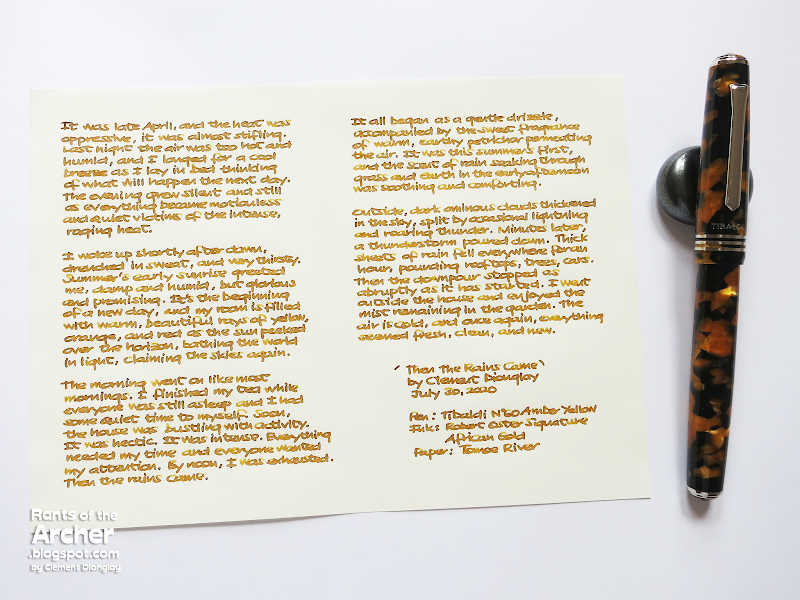 It was late April, and the heat was
oppressive, it was almost stifling.
Last night the air was too hot and
humid, and I longed for a cool
breeze as I lay in bed thinking
of what will happen the next day.
The evening grew silent and still
as everything became motionless
and quiet victims of the intense,
raging heat.
I woke up shortly after dawn,
drenched in sweat, and very thirsty.
Summer's early sunrise greeted
me, damp and humid, but glorious
and promising. It's the beginning
of a new day, and my room is filled
with warm, beautiful rays of yellow,
orange, and red as the sun peeked
over the horizon, bathing the world
in light, claiming the skies again.
The morning went on like most
mornings. I finished my tea while
everyone was still asleep and I had
some quiet time to myself. Soon,
the house was bustling with activity.
It was hectic. It was intense. Everything
needed my time and everyone wanted
my attention. By noon, I was exhausted.
Then the rains came.
It all began as a gentle drizzle,
accompanied by the sweet fragrance
of warm, earthy petrichor permeating
the air. It was this summer's first,
and the scent of rain soaking through
grass and earth in the early afternoon
was soothing and comforting.
Outside, dark ominous clouds thickened
in the sky, split by occasional lightning
and roaring thunder. Minutes later,
a thunderstorm poured down. Thick
sheets of rain fell everywhere for an
hour, pounding rooftops, trees, cars.
Then the downpour stopped as
abruptly as it has started. I went
outside the house and enjoyed the
mist remaining in the garden. The
air is cold, and once again, everything
seemed fresh, clean, and new.
'Then The Rains Came'
by Clement Dionglay
July 30, 2020
Pen: Tibaldi N°60 Amber Yellow
Ink: Robert Oster Signature
African Gold
Paper: Tomoe River
TIBALDI
Rants of the
Archer
.blogspot.com
by Clement Dionglay